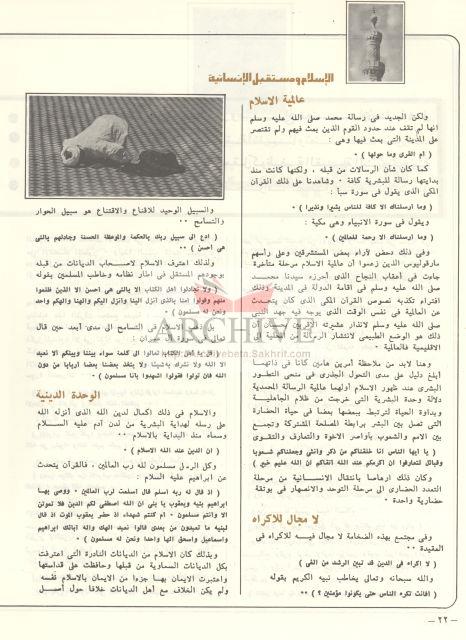 الإسلام ومستقبل الإنسانية
عالمية الاسلام
ولكن الجديد فى رسالة محمد صلى الله عليه وسلم
انها لم تقف عند حدود القوم الذين بعث فيهم ولم تقتصر
على المدينة التى بعث فيها وهى :
( ام القرى وما حولها ) ٠
كما كان شأن الرسالات من قبله ، ولكنها كانت منذ
بدايتها رسالة للبشرية كافة ٠ وشاهدنا على ذلك القرآن
المكى الذى يقول فى سورة سبأ :
( وما ارسلناك الا كافة للناس بشيرا ونذيرا ) ٠
ويقول فى سورة الانبياء وهى مكية :
( وما ارسلناك الا رحمة للعالمين ) ٠
وفى ذلك دحض لأزام بعض المستشرقين وعلى رأسهم
مارقوليوس الذين زعموا أن عالمية الاسلام مرحلة متأخرة
جاءت فى أعقاب النجاح الذى أحرزه سيدنا محمد
صلى الله عليه وسلم فى اقامة الدولة فى المدينة وذلك
افتراء تكذبه نصوص القرآن المكى الذى كان يتحدث
عن العالمية فى نفس الوقت الذى يوجه فيه جهد النبى
صلى الله عليه وسلم لانذار عشيرته الأقربين
ذلك هو الوضع الطبيعى لانتشار الرسالة من المحلية الى
الاقليمية فالعالمية ٠
وهنا لابد من ملاحظة أمرين هامين كانا فى ذاتهما
أبلغ دليل على مدى التحول الجذرى فى منحى التطور
البشرى عند ظهور الاسلام أولهما عالمية الرسالة المحمدية
دلالة وحدة البشرية التى خرجت من ظلام الجاهلية
وبداوة الحياة لترتبط ببعضها بعضا فى حياة الحضارة
التى تصل بين البشر برابطة المصلحة المشتركة وتجمع
بين الامم والشعوب بأواصر الاخوة والتعارف والتقوى
( يا ايها الناس انا خلقناكم من ذكر وانثى وجعلناكم شعوبا
وقبائل لتعارفوا ان اكرمكم عند الله اتقاكم ان الله عليم خبير )
وكان ذلك ارهاصا بانتقال الانسانية من مرحلة
التعدد الحضارى الى مرحلة التوحد والانصهار فى بوتقة
حضارية واحدة ٠
لا مجال للاكراه
وفى مجتمع بهذه الضخامة لا مجال فيه للاكراه فى
العقيدة ٠٠
( لا اكراه فى الدين قد تبين الرشد من الغى )
والله سبحانه وتعالى يخاطب نبيه الكريم بقوله
( افانت تكره الناس حتى يكونوا مؤمنين ؟ ) ٠٠
والسبيل الوحيد للاقناع والاقتناع هو سبيل الحوار
والتسامح ٠٠
( ادع الى سبيل ربك بالحكمة والموعظة الحسنة وجادلهم بالتى
هى احسن ) ٠٠
ولذلك اعترف الاسلام لاصحاب الديانات من قبله
بوجودهم المستقل فى اطار نظامه وخاطب المسلمين بقوله
( ولا تجادلوا اهل الكتاب الا بالتى هى احسن الا الذين ظلموا
منهم وقولوا آمنا بالذى انزل الينا وانزل اليكم والهنا والهكم واحد
ونحن له مسلمون ) ٠
الاسلام فى التسامح الى مدى أبعد حين قال
( قل يا اهل الكتاب تعالوا الى كلمة سواء بيننا وبينكم الا نعبد
الا الله ولا نشرك به شيئا ولا يتخذ بعضنا بعضا اربابا من دون
الله فان تولوا فقولوا اشهدوا بانا مسلمون )
الوحدة الدينية
والاسلام فى ذلك اكمال لدين الله الذى أنزله الله
على رسله لهداية البشرية من لدن آدم عليه السلام
وسماه منذ البداية بالاسلام ٠٠
( ان الدين عند الله الاسلام ) ٠
وكل الرسل مسلمون لله رب العالمين ، فالقرآن يتحدث
عن ابراهيم عليه السلام :
( اذ قال له ربه اسلم قال اسلمت لرب العالمين ٠ ووصى بها
ابراهيم بنيه ويعقوب يا بنى ان الله اصطفى لكم الدين فلا تموتن
الا وانتم مسلمون ٠ ام كنتم شهداء اذ حضر يعقوب الموت اذ قال
لبنيه ما تعبدون من بعدى قالوا نعبد الهك واله آبائك ابراهيم
واسماعيل واسحق الها واحدا ونحن له مسلمون ) ٠
وبذلك كان الاسلام من الديانات النادرة التى اعترفت
بكل الديانات السماوية من قبلها وحافظت على قداستها
واعتبرت الايمان بها جزءا من الايمان بالاسلام نفسه
ولم يكن الخلاف مع أهل الديانات خلافا حول أصل
ARCHIVE
Sakhrit.com
— ٢٢ —